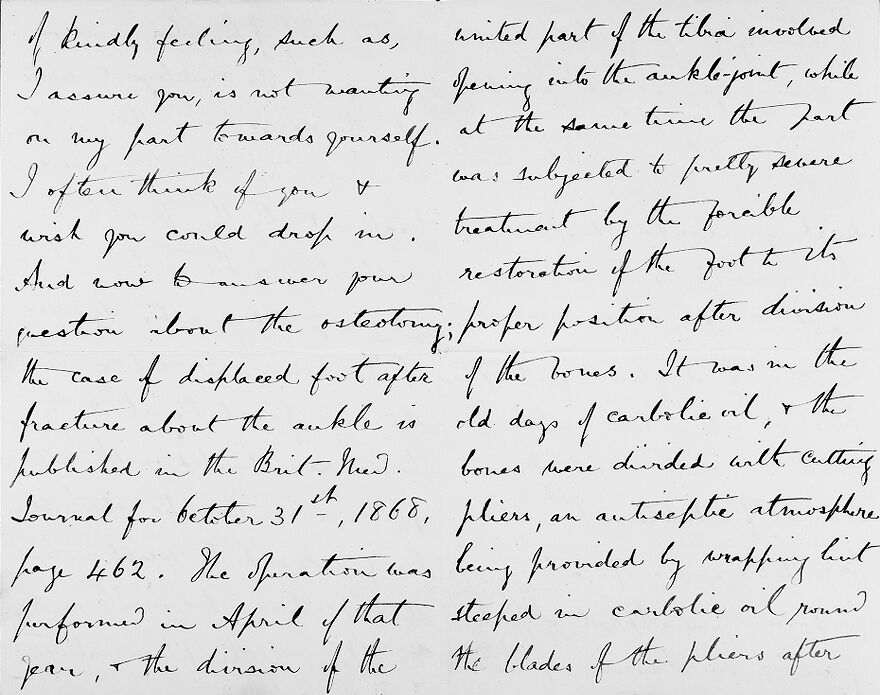 of kindly feeling, such as,
I assure you, is not wanting
on my part towards yourself.
I often think of you &
wish you could drop in.
And now to answer your
question about the osteotomy;
the case of displaced foot after
fracture about the ankle is
published in the Brit. Med.
Journal for October 31st, 1868,
page 462. The operation was
performed in April of that
year, & the division of the
united part of the tibia involved
opening into the ankle-joint, while
at the same time the part
was subjected to pretty severe
treatment by the forcible
restoration of the foot to its
proper position after division
of the bones. It was in the
old days of carbolic oil, & the
bones were divided with cutting
pliers, an antiseptic atmosphere
being provided by wrapping lint
steeped in carbolic oil round
the blades of the pliers after